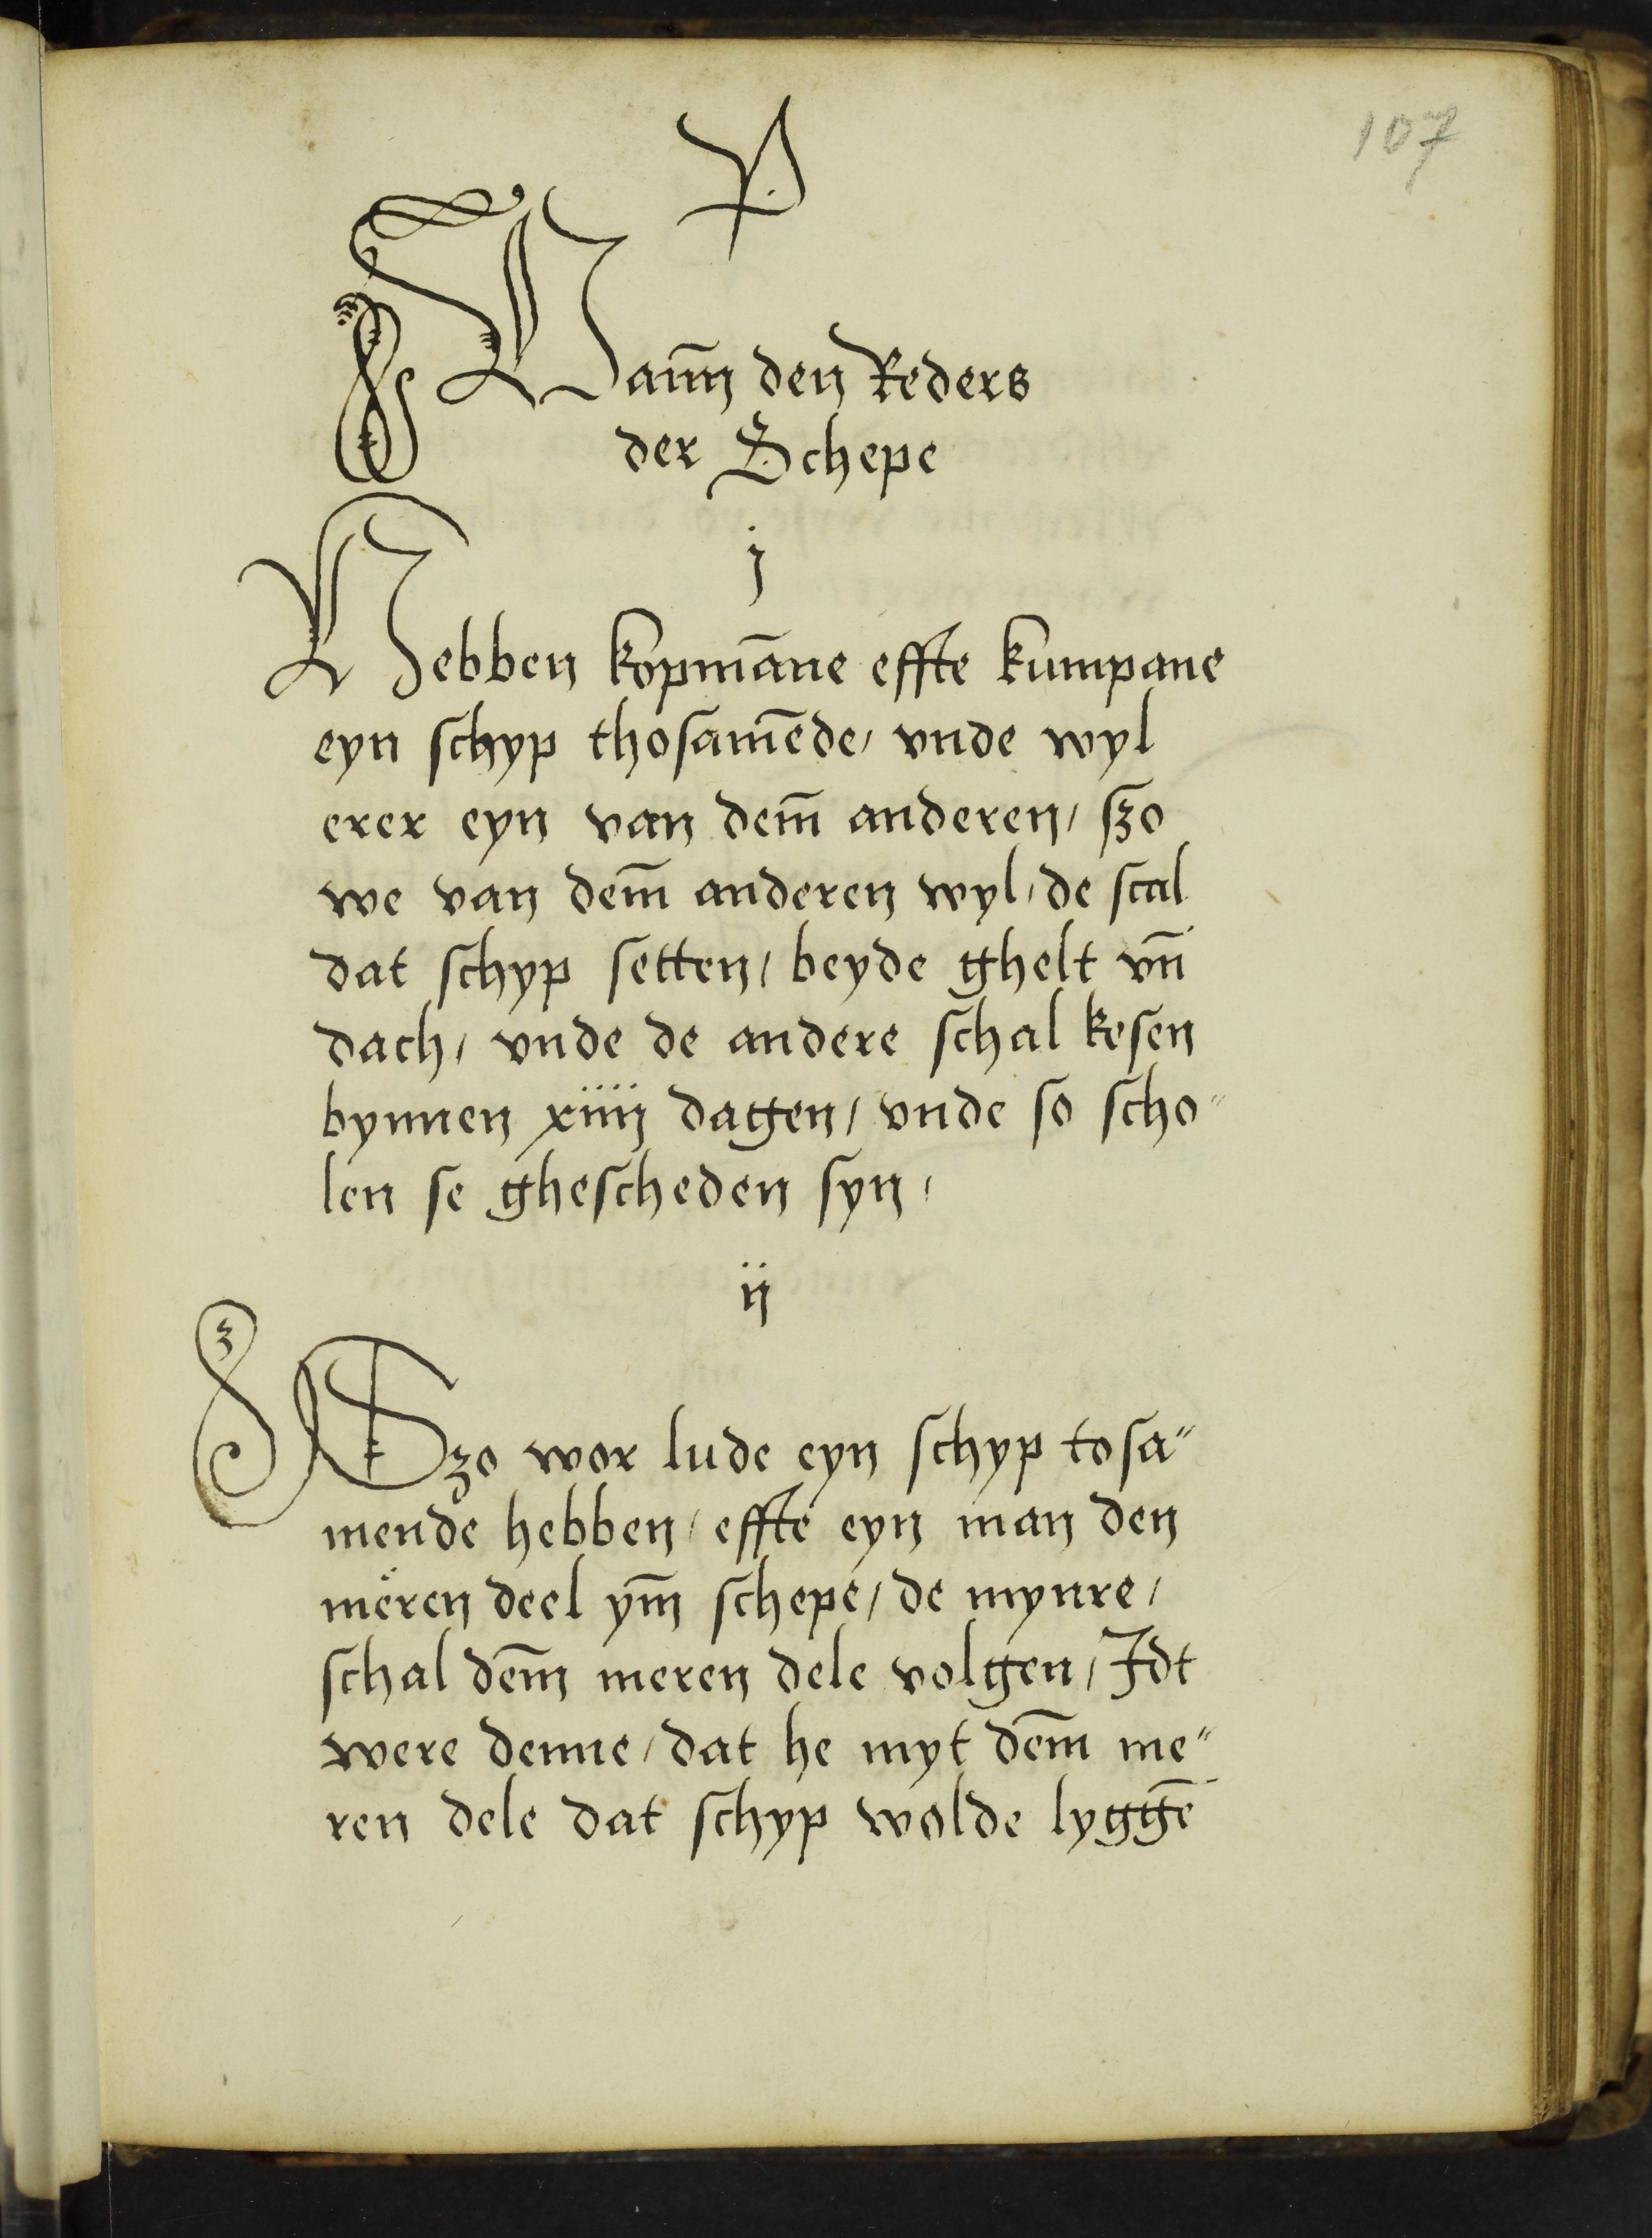 107
P
Vann̄ den Reders
der Schepe
j
Hebben kopmāne effte kumpane
eyn schyp thosamēde/ vnde wyl
erer eyn van dem̄ anderen/ szo
we van dem̄ anderen wyl/ de scal
dat schyp setten/ beyde ghelt vn̄
dach/ vnde de andere schal kesen
bynnen xiiij dagen/ vnde so scho〃
len se ghescheden syn/
ij
Szo wor lude eyn schyp tosa〃
mende hebben/ effte eyn man den
meren deel ym̄ schepe/ de mynre/
schal dem̄ meren dele volgen/ Jdt
were denne/ dat he myt dem̄ me〃
ren dele dat schyp wolde lyggē